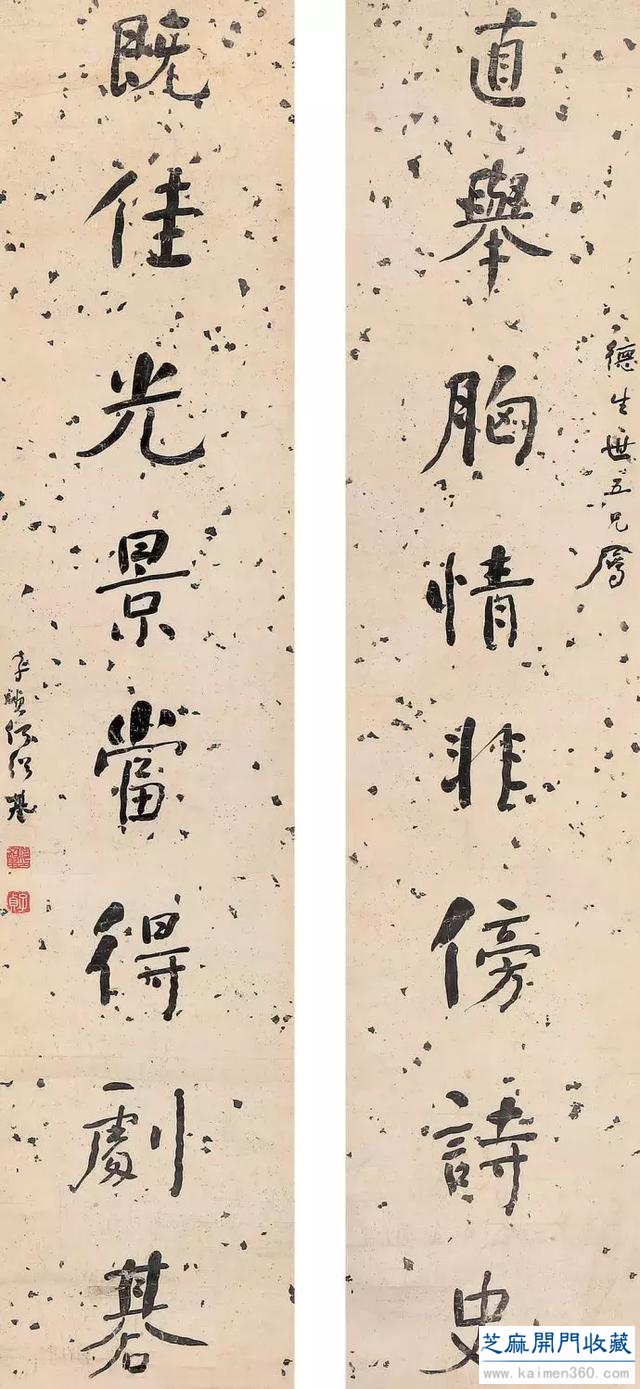 德生世五兄屬
直舉胸情非傍詩史
既佳光景當得劇碁
子貞何紹基
芝麻開門收藏
www.kaimen360.com